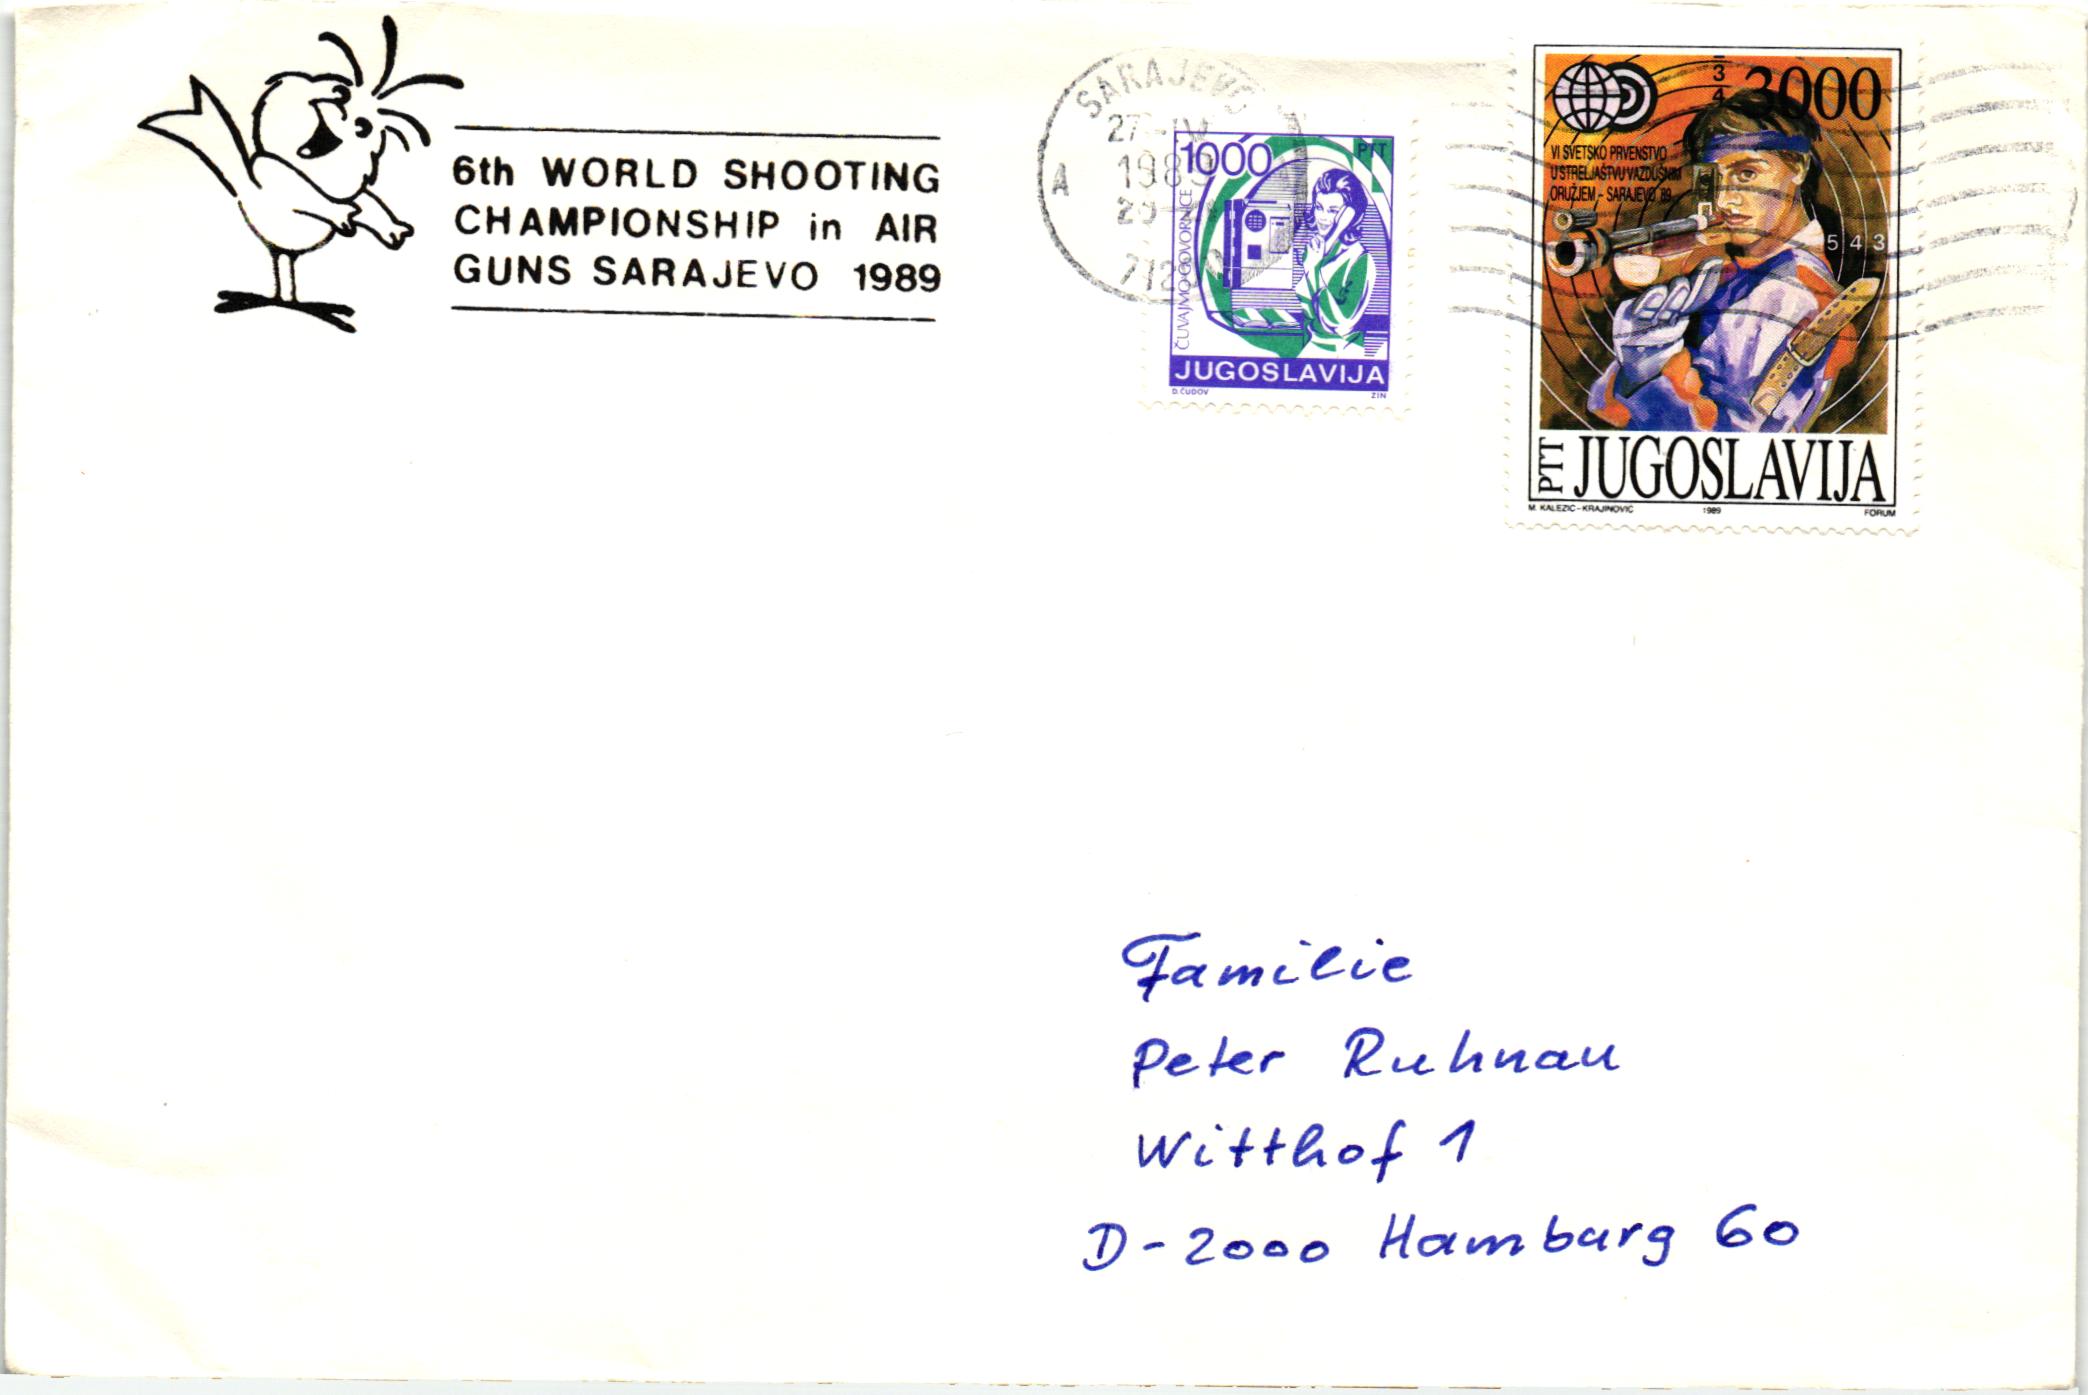 6th WORLD SHOOTING
CHAMPIONSHIP in AIR
GUNS SARAJEVO 1989
SARAJEVO
27-IV
1989
A
1000
PTT
ČUVAJMO GOVORNICE
JUGOSLAVIJA
D. ČUDOV
ZIN
3
4
3000
VI SVETSKO PRVENSTVO
U STRELJAŠTVU VAZDUŠNIM
ORUŽJEM - SARAJEVO '89
5 4 3
PTT JUGOSLAVIJA
M. KALEZIĆ-KRAJINOVIĆ 1989 FORUM
Familie
Peter Ruhnau
Witthof 1
D-2000 Hamburg 60